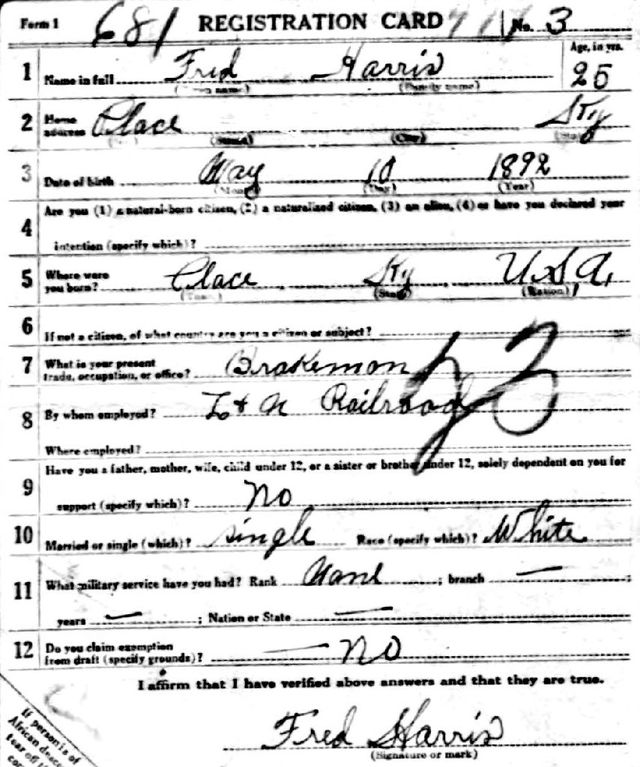 Form 1 681 REGISTRATION CARD No. 3
1 Name in full Fred Harris Age, in yrs. 25
(Given name) (Family name)
2 Home address Place Ky
(No.) (Street) (City) (State)
3 Date of birth May 10 1892
(Month) (Day) (Year)
4 Are you (1) a natural-born citizen, (2) a naturalized citizen, (3) an alien, (4) or have you declared your
intention (specify which)?
5 Where were you born? Place Ky U.S.A.
(Town) (State) (Nation)
6 If not a citizen, of what country are you a citizen or subject?
7 What is your present trade, occupation, or office? Brakeman 23
8 By whom employed? L & N Railroad
Where employed?
9 Have you a father, mother, wife, child under 12, or a sister or brother under 12, solely dependent on you for
support (specify which)? No
10 Married or single (which)? Single Race (specify which)? White
11 What military service have you had? Rank None ; branch — ;
years — ; Nation or State —
12 Do you claim exemption from draft (specify grounds)? — No
I affirm that I have verified above answers and that they are true.
Fred Harris
(Signature or mark)
If person is of
African
tear off